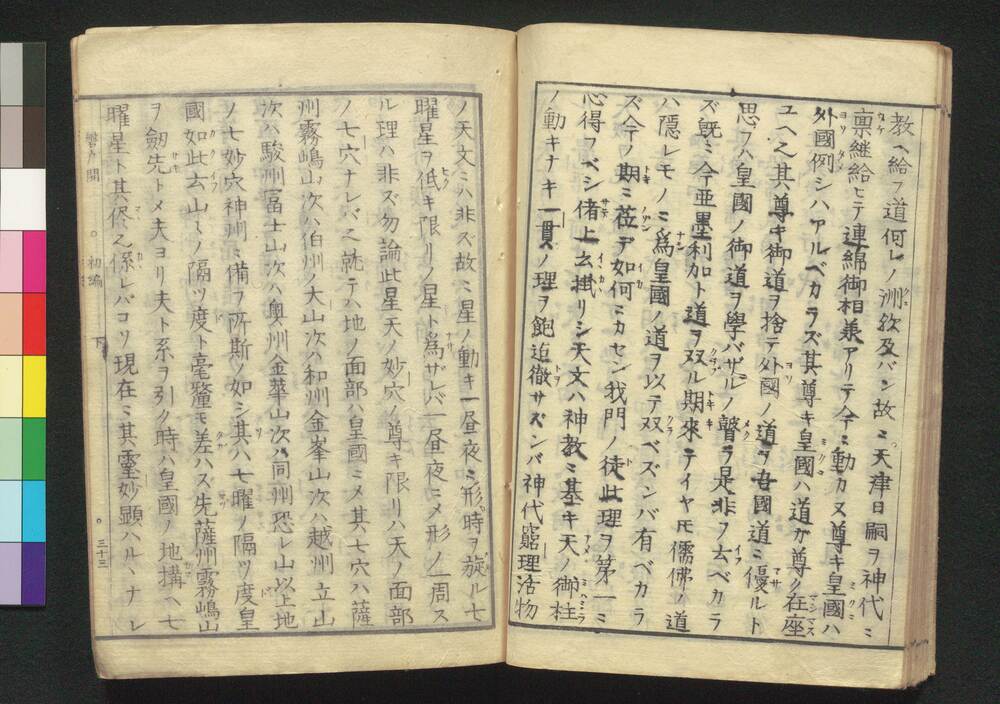 教ヘ給フ道何レノ洲歟及バン故ニ天津日嗣ヲ神代ニ
禀継給ヒテ連綿御相兼アリテ今ニ動カヌ尊キ皇國ハ
外國例シハアルベカラズ其尊キ皇國ハ道カ尊ク在座
ユヘ之其尊キ御道ヲ捨テ外國ノ道ヲ吾國道ニ優ルト
思フハ皇國ノ御道ヲ學バザルノ瞽ラ是非ヲ云ベカラ
ズ既ニ今亜墨利加ト道ヲ双ル期來テイヤ𪜈儒佛ノ道
ハ隠レモノニ爲皇國ノ道ヲ以テ双ベズンバ有ベカラ
ズ今ノ期ニ莅デ如何ニカセン我門ノ徒此理ヲ第一ニ
心得フベシ偖上云掛リシ天文ハ神教ニ基キ天ノ御柱
ノ動キナキ一貫ノ理ヲ飽迫徹サズンバ神代窮理活物
ノ天文ニハ非ズ故ニ星ノ動キ一昼夜ニ形時ヲ旋ル七
曜星ヲ低キ限リノ星ト爲ザレバ一昼夜ニメ形ノ一周ス
ル理ハ非ズ勿論此星天ノ妙穴ノ尊キ限リハ天ノ面部
ノ七穴ナレバ之就テハ地ノ面部ハ皇國ニメ其七穴ハ薩
州霧嶋山次ハ伯州ノ大山次ハ和州金峯山次ハ越州立山
次ハ駿州冨士山次ハ奥州金華山次ハ同州恐レ山以上地
ノ七妙穴神州ニ備フ所斯ノ如シ其ハ七曜ノ隔ツ度皇
國如此云山々ノ隔ツ度ト毫釐モ差ハズ先薩州霧嶋山
ヲ劔先トメ夫ヨリ夫ト系ヲ引ク時ハ皇國ノ地搆ヘ七
曜星ト其侭之係レバコソ現在ニ其霊妙顕ハルヽナレ
初編
下
三十三